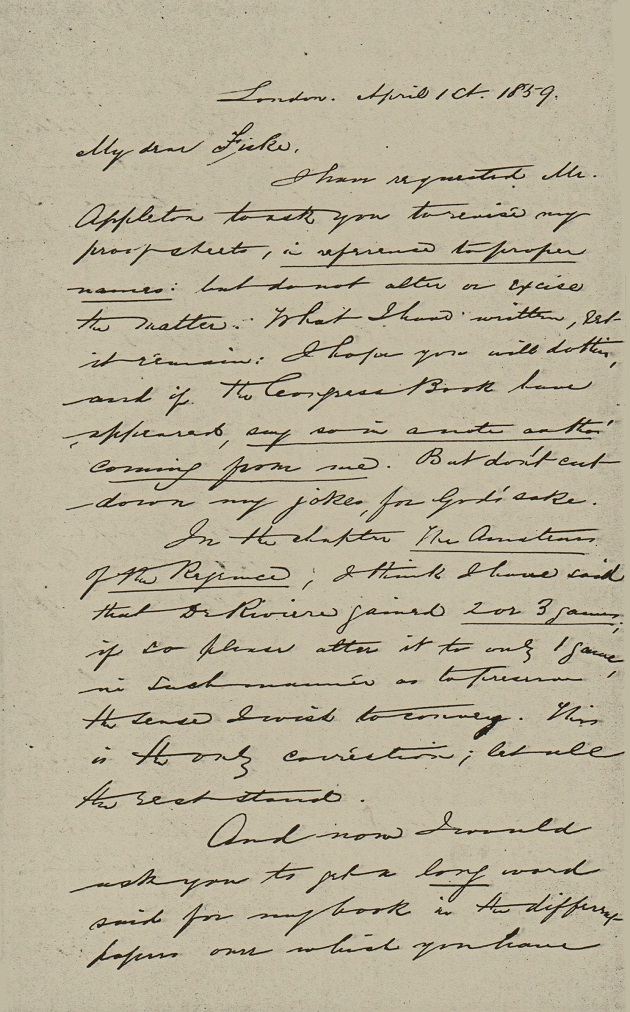 London. April 1st. 1859.
My dear Fiske,
I have requested Mr.
Appleton to ask you to revise my
proof sheets, in reference to proper
names: but do not alter or excise
the matter. What I have written, let
it remain: I hope you will do this,
and if the Congress Book have
appeared, say so in a note as tho'
coming from me. But don't cut
down my jokes, for God's sake.
In the chapter The Amateurs
of the Regence, I think I have said
that De Riviere gained 2 or 3 games;
if so please alter it to only 1 game,
in such manner as to preserve
the sense I wish to convey. This
is the only correction; let all
the rest stand.
And now I would
ask you to get a long word
said for my book in the different
papers over which you have